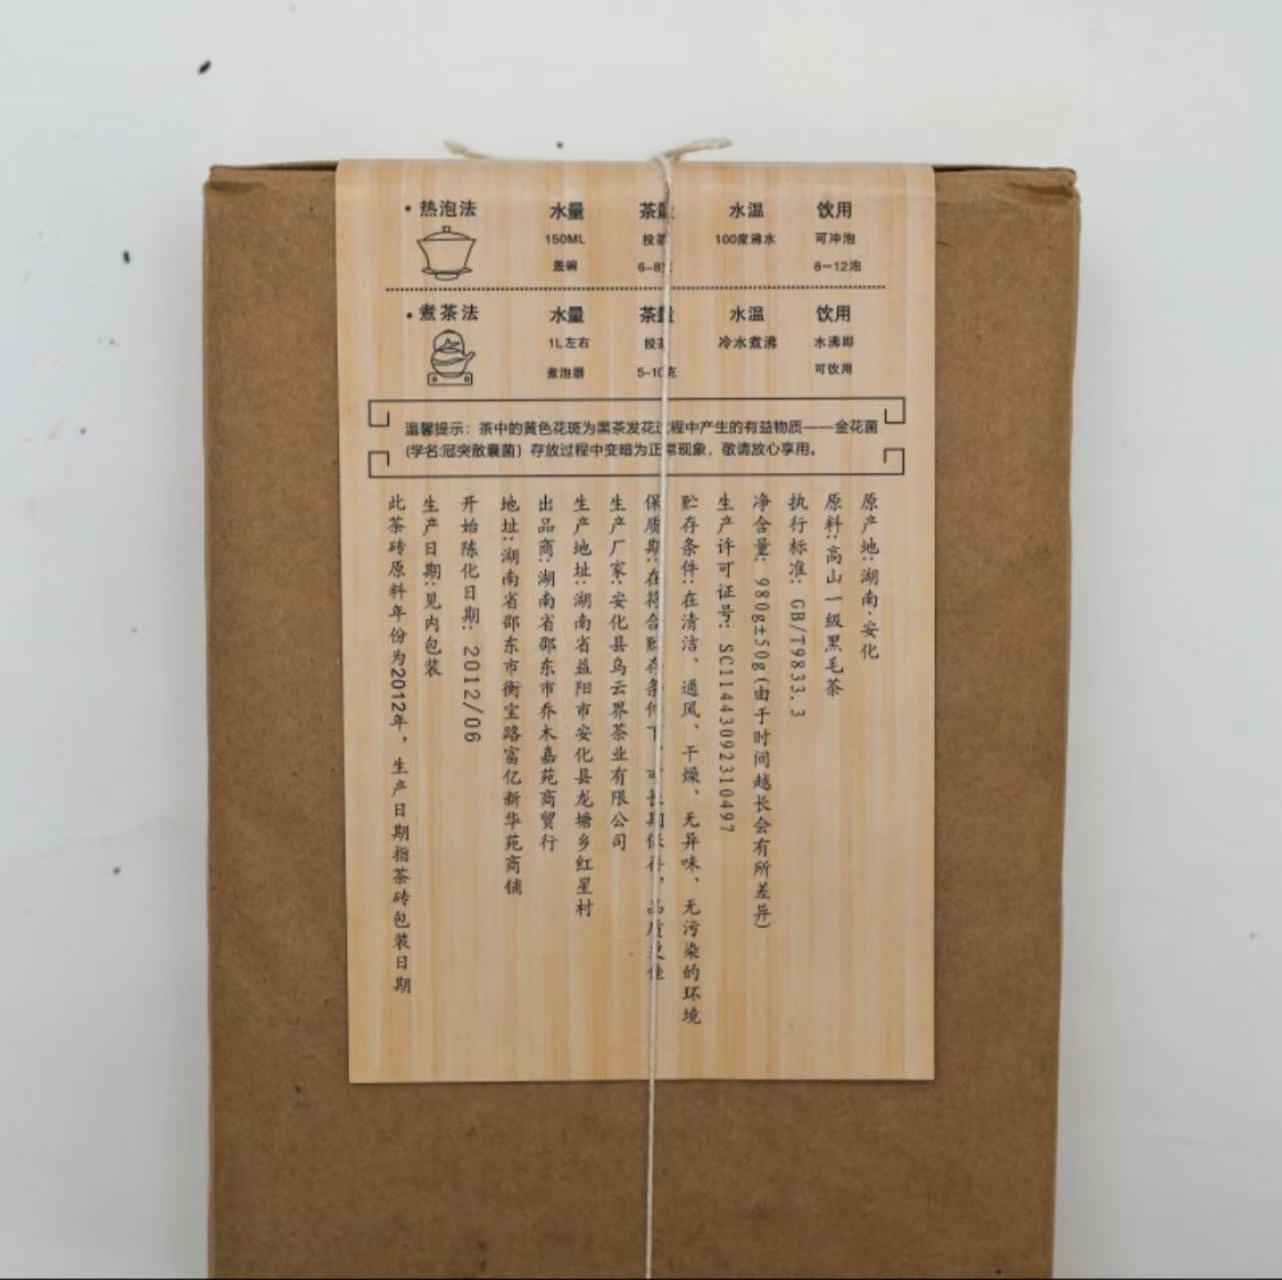 •热泡法 水量 茶量 水温 饮用
150ML 投茶 100度沸水 可冲泡
盖碗 6-8克 8-12泡
•煮茶法 水量 茶量 水温 饮用
1L左右 投茶 冷水煮沸 水沸即
煮泡器 5-10克 可饮用
温馨提示：茶中的黄色花斑为黑茶发花过程中产生的有益物质——金花菌
(学名:冠突散囊菌）存放过程中变暗为正常现象，敬请放心享用。
原产地:湖南·安化
原料:高山一级黑毛茶
执行标准: GB/T9833.3
净含量: 980g±50g(由于时间越长会有所差异)
生产许可证号: SC11443092310497
贮存条件:在清洁、通风、干燥、无异味、无污染的环境
保质期:在符合贮存条件下，可长期保存，品质更佳
生产厂家:安化县乌云界茶业有限公司
生产地址:湖南省益阳市安化县龙塘乡红星村
出品商:湖南省邵东市乔木嘉苑商贸行
地址:湖南省邵东市衡宝路富亿新华苑商铺
开始陈化日期: 2012/06
生产日期:见内包装
此茶砖原料年份为2012年，生产日期指茶砖包装日期